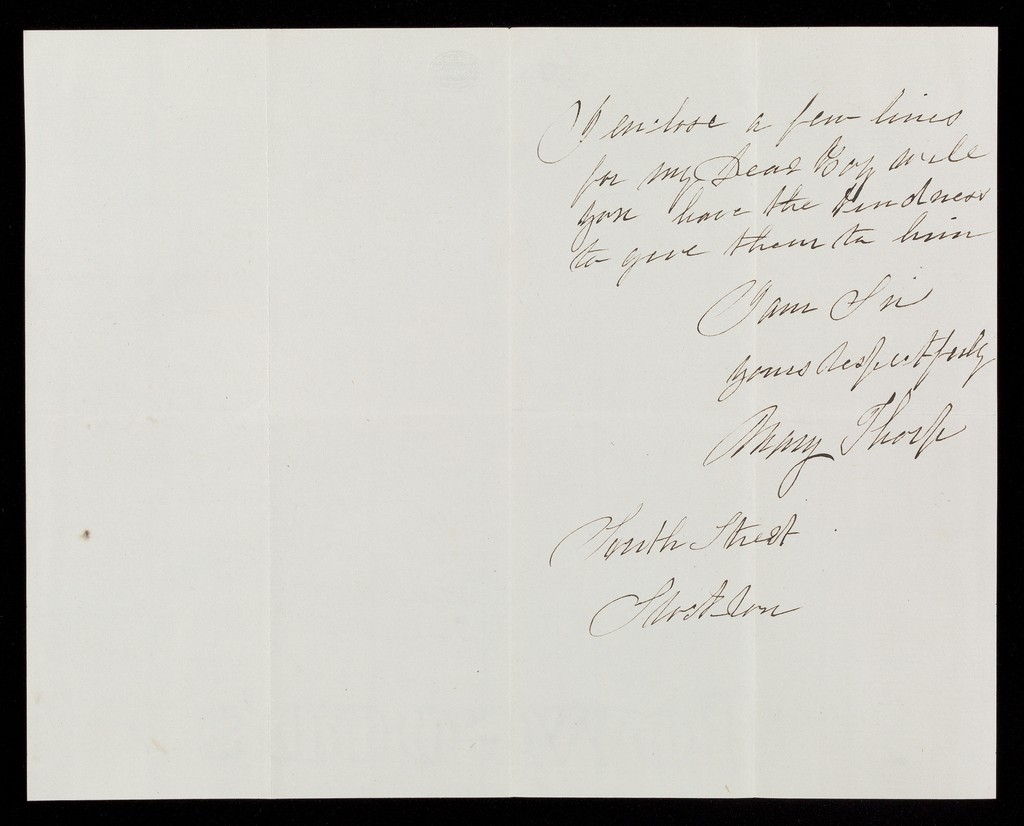 I enclose a few lines
for my Dear Boy will
you have the kindness
to give them to him
I am Sir
yours respectfully
Mary Thorp
South Street
Stockton